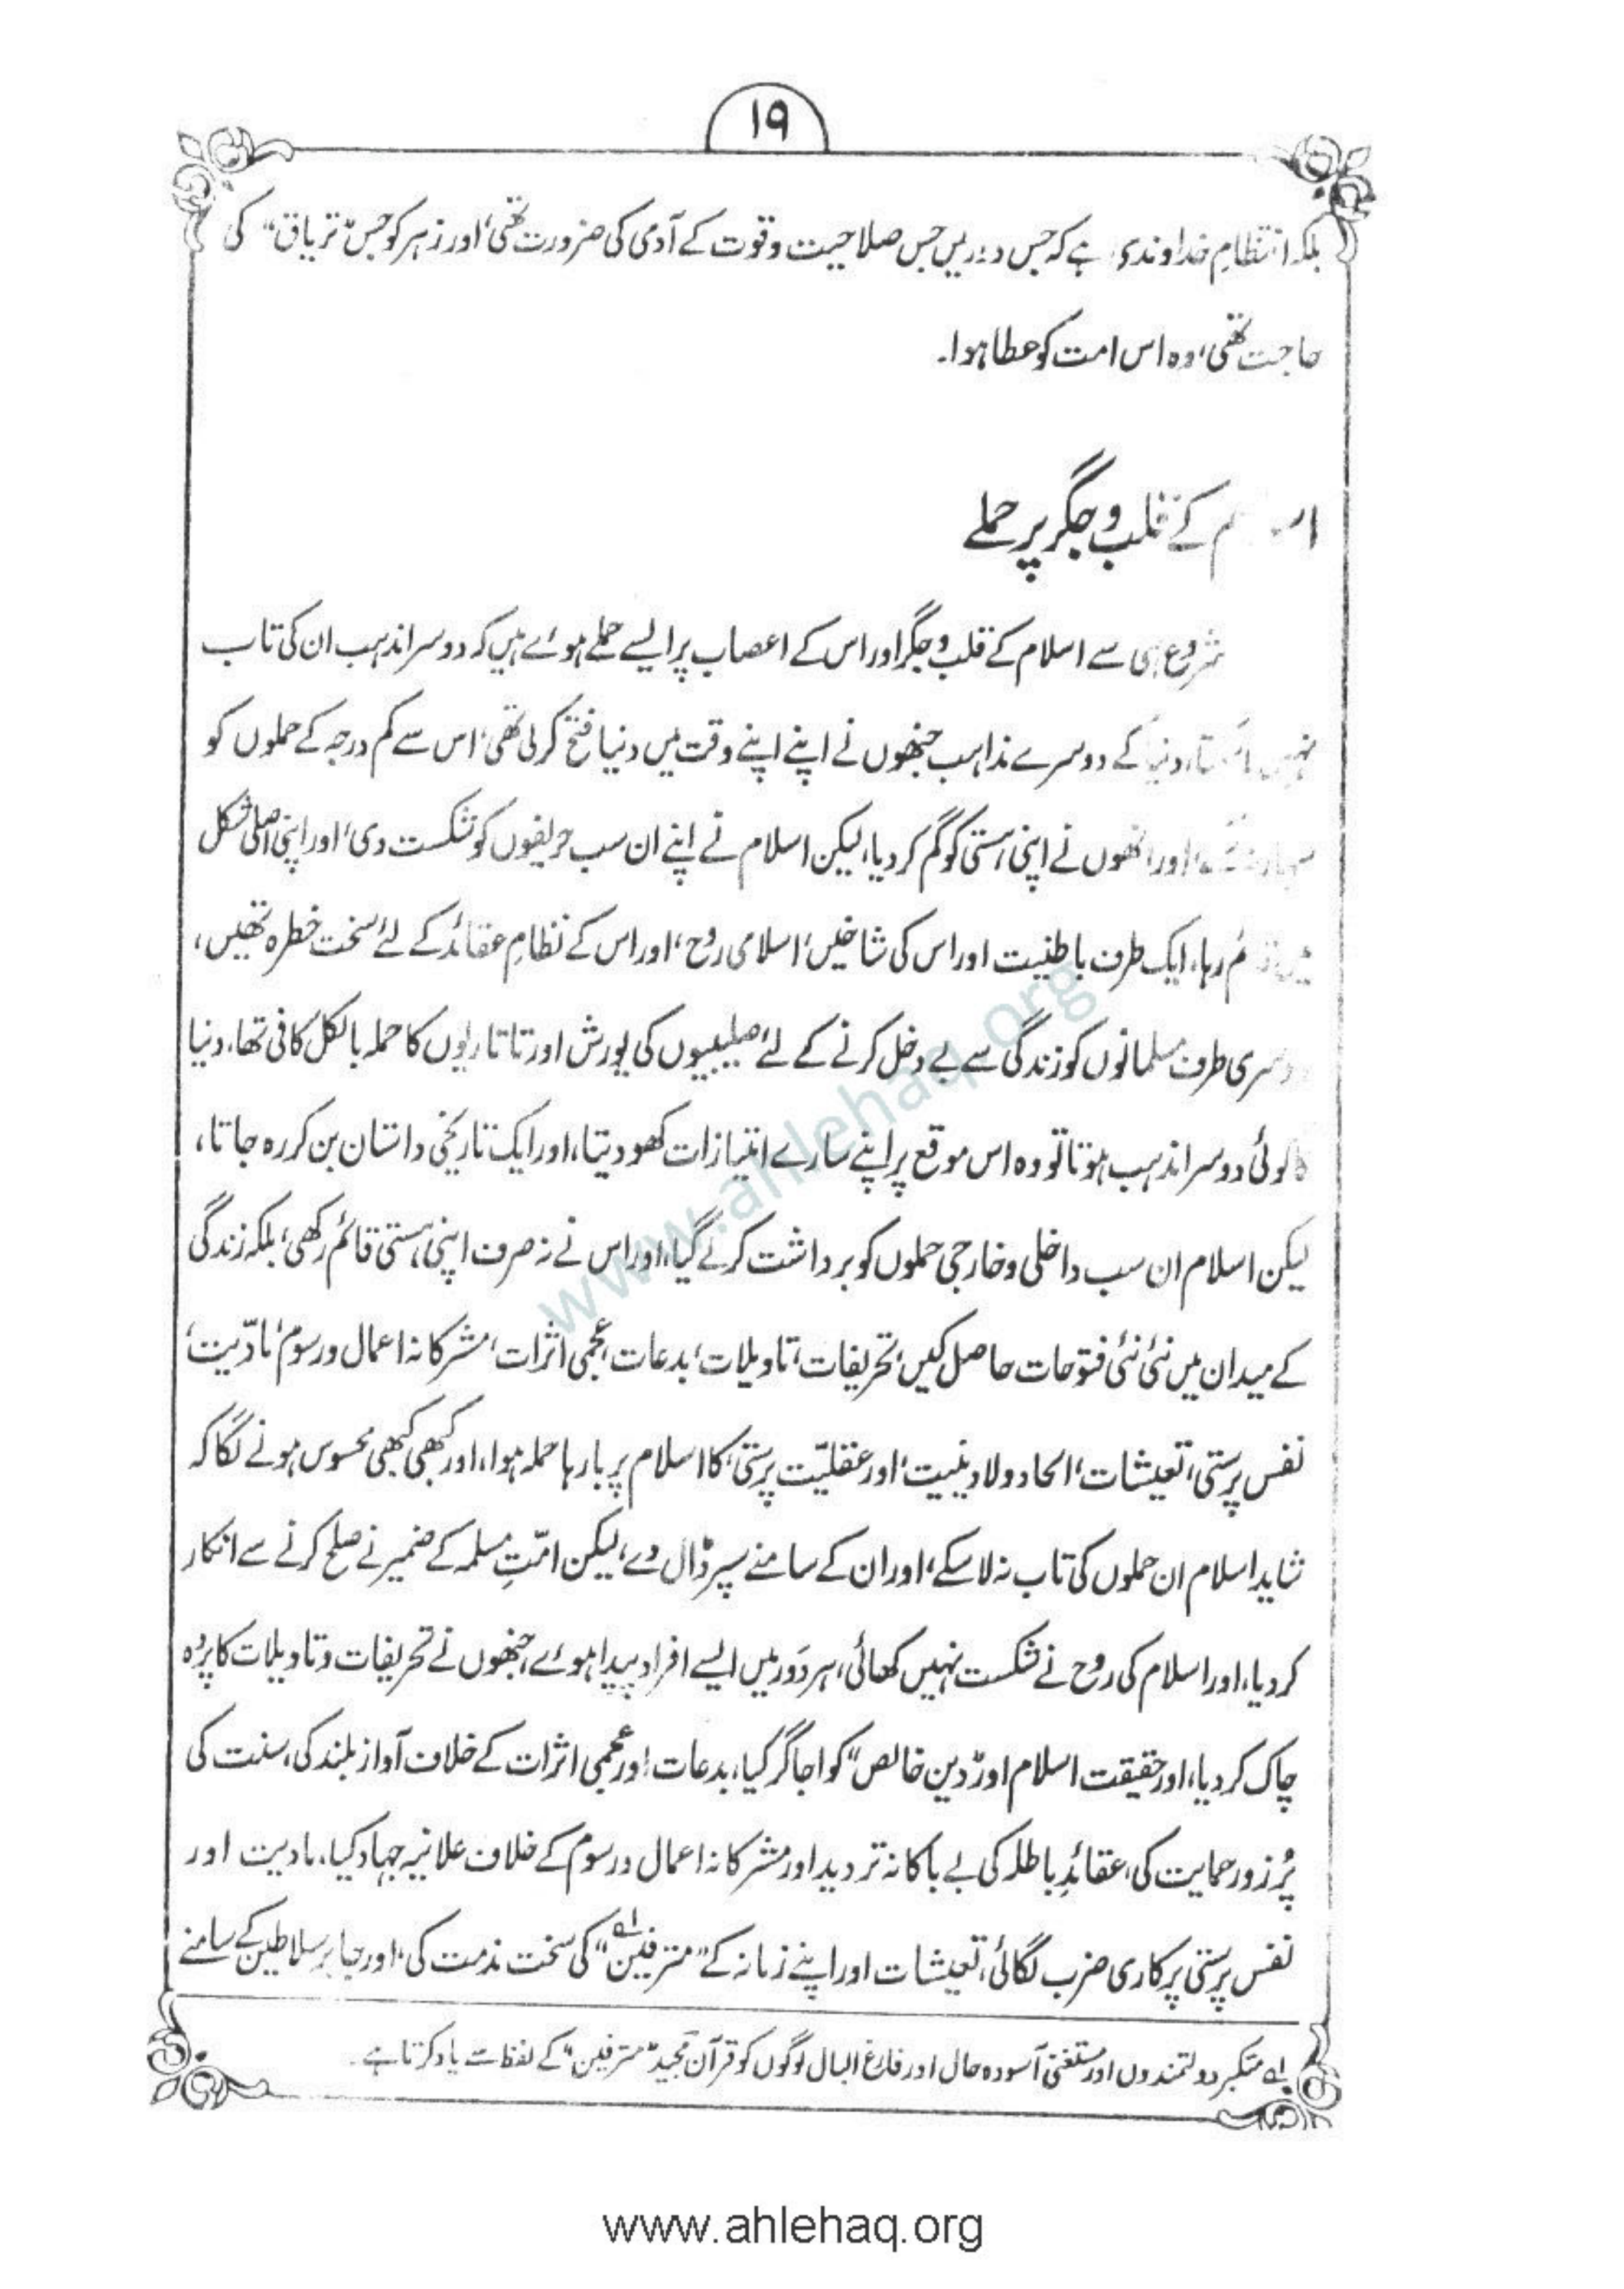 ۱۹
بلکہ انتظامِ خداوندی ہے کہ جس دور میں جس صلاحیت و قوت کے آدمی کی ضرورت تھی، اور زہر کو جس "تریاق" کی
حاجت تھی، وہ اس امت کو عطا ہوا۔
کے قلب و جگر پر حملے
شروع ہی سے اسلام کے قلب و جگر اور اس کے اعصاب پر ایسے حملے ہوئے ہیں کہ دوسرا مذہب ان کی تاب
نہیں دنیا کے دوسرے مذاہب جنھوں نے اپنے اپنے وقت میں دنیا فتح کر لی تھی، اس سے کم درجہ کے حملوں کو
اور انھوں نے اپنی ہستی کو گم کر دیا، لیکن اسلام نے اپنے ان سب حریفوں کو شکست دی، اور اپنی اصلی شکل
رہا، ایک طرف باطنیت اور اس کی شاخیں، اسلامی روح، اور اس کے نظامِ عقائد کے لئے سخت خطرہ تھیں،
دوسری طرف مسلمانوں کو زندگی سے بے دخل کرنے کے لئے صلیبیوں کی یورش اور تاتاریوں کا حملہ بالکل کافی تھا، دنیا
کا کوئی دوسرا مذہب ہوتا تو وہ اس موقع پر اپنے سارے امتیازات کھو دیتا، اور ایک تاریخی داستان بن کر رہ جاتا،
لیکن اسلام ان سب داخلی و خارجی حملوں کو برداشت کر لے گیا، اور اس نے نہ صرف اپنی ہستی قائم رکھی، بلکہ زندگی
کے میدان میں نئی نئی فتوحات حاصل کیں، تحریفات، تاویلات، بدعات، عجمی اثرات، مشرکانہ اعمال و رسوم، مادّیت،
نفس پرستی، تعیشات، الحاد و لادینیت، اور عقلیّت پرستی، کا اسلام پر بارہا حملہ ہوا، اور کبھی کبھی محسوس ہونے لگا کہ
شاید اسلام ان حملوں کی تاب نہ لا سکے، اور ان کے سامنے سپر ڈال دے، لیکن امّتِ مسلمہ کے ضمیر نے صلح کرنے سے انکار
کر دیا، اور اسلام کی روح نے شکست نہیں کھائی، ہر دَور میں ایسے افراد پیدا ہوئے، جنھوں نے تحریفات و تاویلات کا پردہ
چاک کر دیا، اور حقیقت اسلام اور "دین خالص" کو اجاگر کیا، بدعات اور عجمی اثرات کے خلاف آواز بلند کی، سنت کی
پُر زور حمایت کی، عقائدِ باطلہ کی بے باکانہ تردید اور مشرکانہ اعمال و رسوم کے خلاف علانیہ جہاد کیا، مادیت اور
نفس پرستی پر کاری ضرب لگائی، تعیشات اور اپنے زمانہ کے "مترفین" لہ کی سخت مذمت کی، اور جابر سلاطین کے سامنے
لہ متکبر دولتمندوں اور مستغنی آسودہ حال اور فارغ البال لوگوں کو قرآن مجید "مترفین" کے لفظ سے یاد کرتا ہے۔
www.ahlehaq.org
www.ahlehaq.org